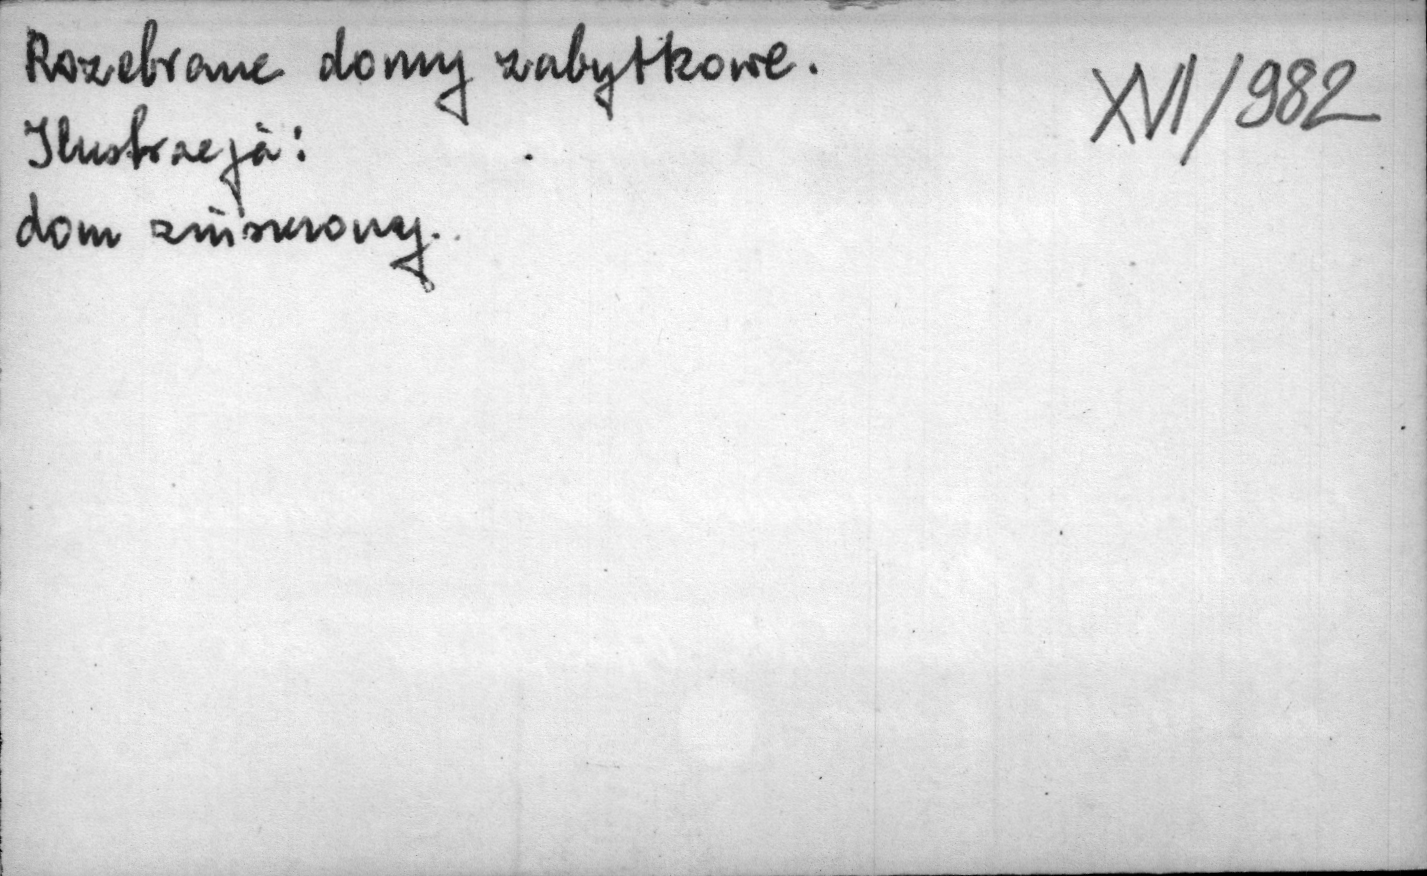 Rozebrane domy zabytkowe.
XVI/982
Ilustracja:
dom zniszczony.